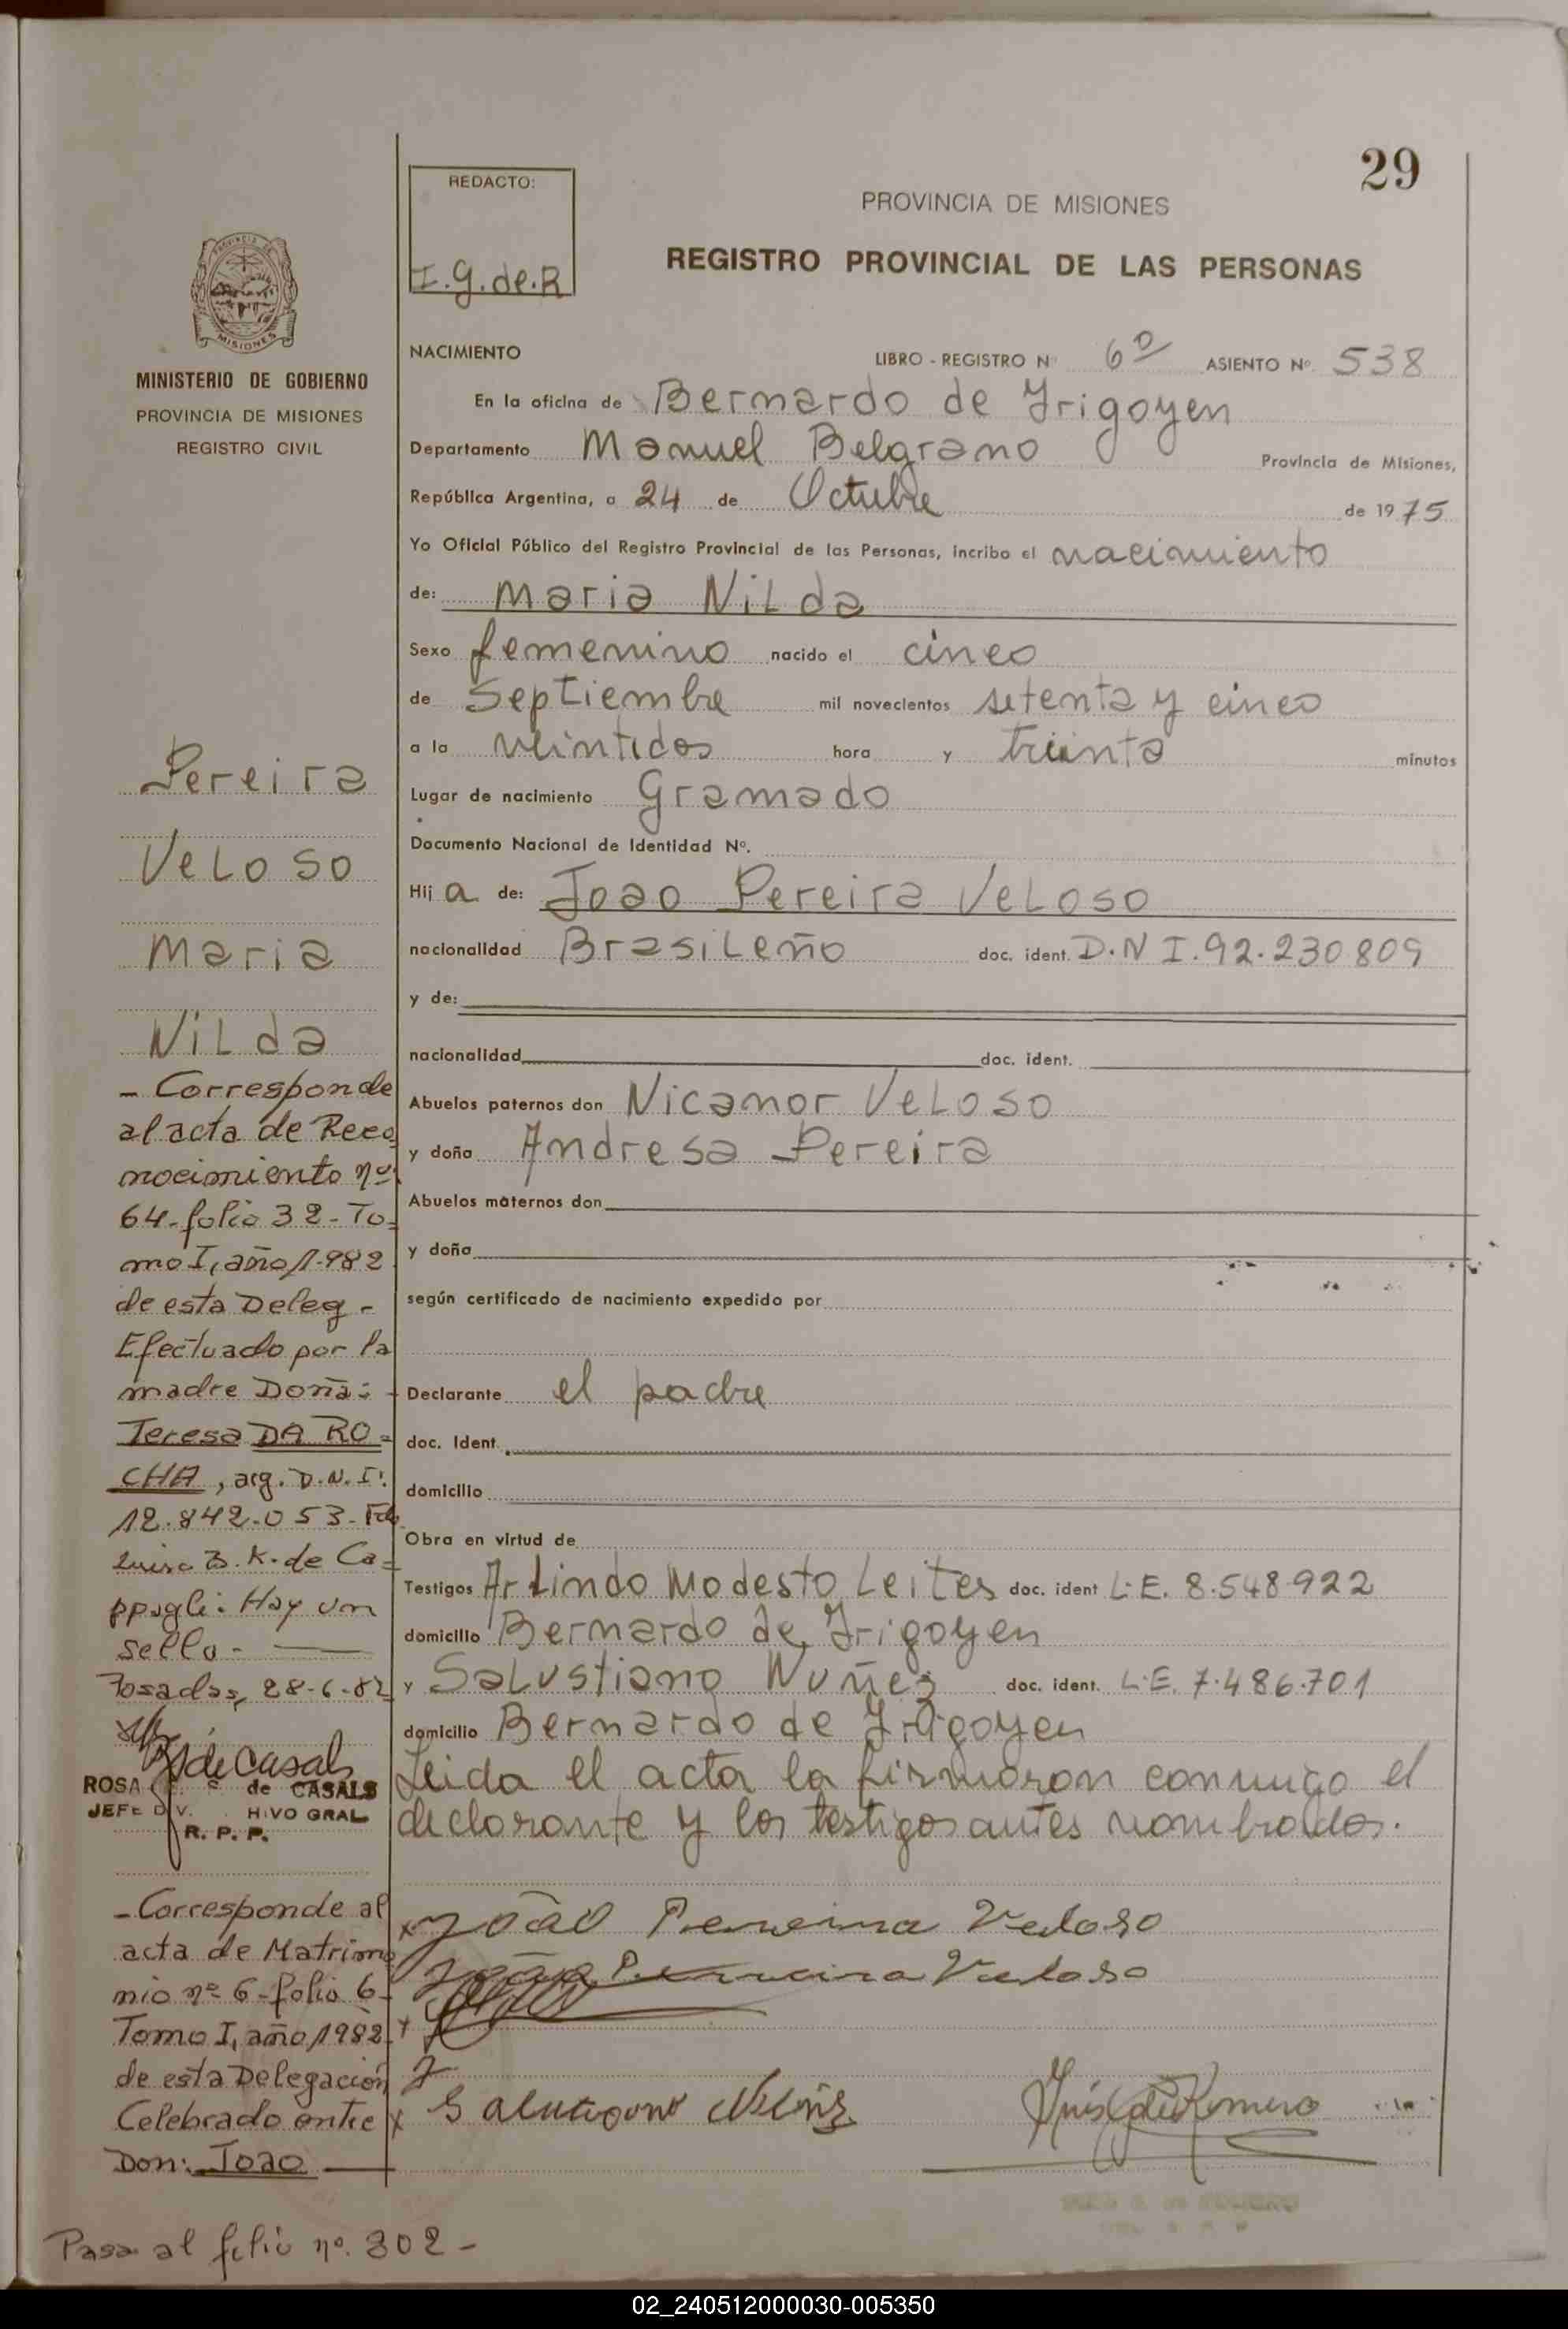 29
REDACTO:
I.G.de.R
PROVINCIA DE MISIONES
REGISTRO PROVINCIAL DE LAS PERSONAS
MINISTERIO DE GOBIERNO
PROVINCIA DE MISIONES
REGISTRO CIVIL
NACIMIENTO LIBRO - REGISTRO Nº 6º ASIENTO Nº 538
En la oficina de Bernardo de Irigoyen
Departamento Manuel Belgrano Provincia de Misiones,
República Argentina, a 24 de Octubre de 1975
Yo Oficial Público del Registro Provincial de las Personas, incribo el nacimiento
de: Maria Nilda
Sexo femenino nacido el cinco
de Septiembre mil novecientos setenta y cinco
a la veintidos hora y treinta minutos
Lugar de nacimiento Gramado
Documento Nacional de Identidad Nº.
Hija de: Joao Pereira Veloso
nacionalidad Brasileño doc. ident. D.N I.92.230.809
y de:
nacionalidad doc. ident.
Abuelos paternos don Nicanor Veloso
y doña Andresa Pereira
Abuelos maternos don
y doña
según certificado de nacimiento expedido por
Declarante el padre
doc. Ident.
domicilio
Obra en virtud de
Testigos Arlindo Modesto Leites doc. ident L.E. 8.548.922
domicilio Bernardo de Irigoyen
y Salustiano Nuñez doc. ident. L.E. 7.486.701
domicilio Bernardo de Irigoyen
Leida el acta la firmaron conmigo el
declarante y los testigos antes nombrados.
x João Pereira Veloso
João Pereira Veloso
Pereira
Veloso
Maria
Nilda
- Corresponde
al acta de Reco
nocimiento nº
64-folio 32-To=
mo I, año 1.982
de esta Deleg-
Efectuado por la
madre Doña:
Teresa DA RO=
CHA, arg. D.N.I.
12.842.053-Fdo
Luisa B. K. de Ca=
ppagli: Hay un
sello-
Posadas, 28-6-82
ROSA de CASALS
JEFE DIV. HIVO GRAL
R. P. P.
- Corresponde al
acta de Matrimo
nio nº 6-folio 6-
Tomo I, año 1982
de esta Delegación
Celebrado entre
Don: Joao
Pasa al folio nº. 302-
02_240512000030-005350